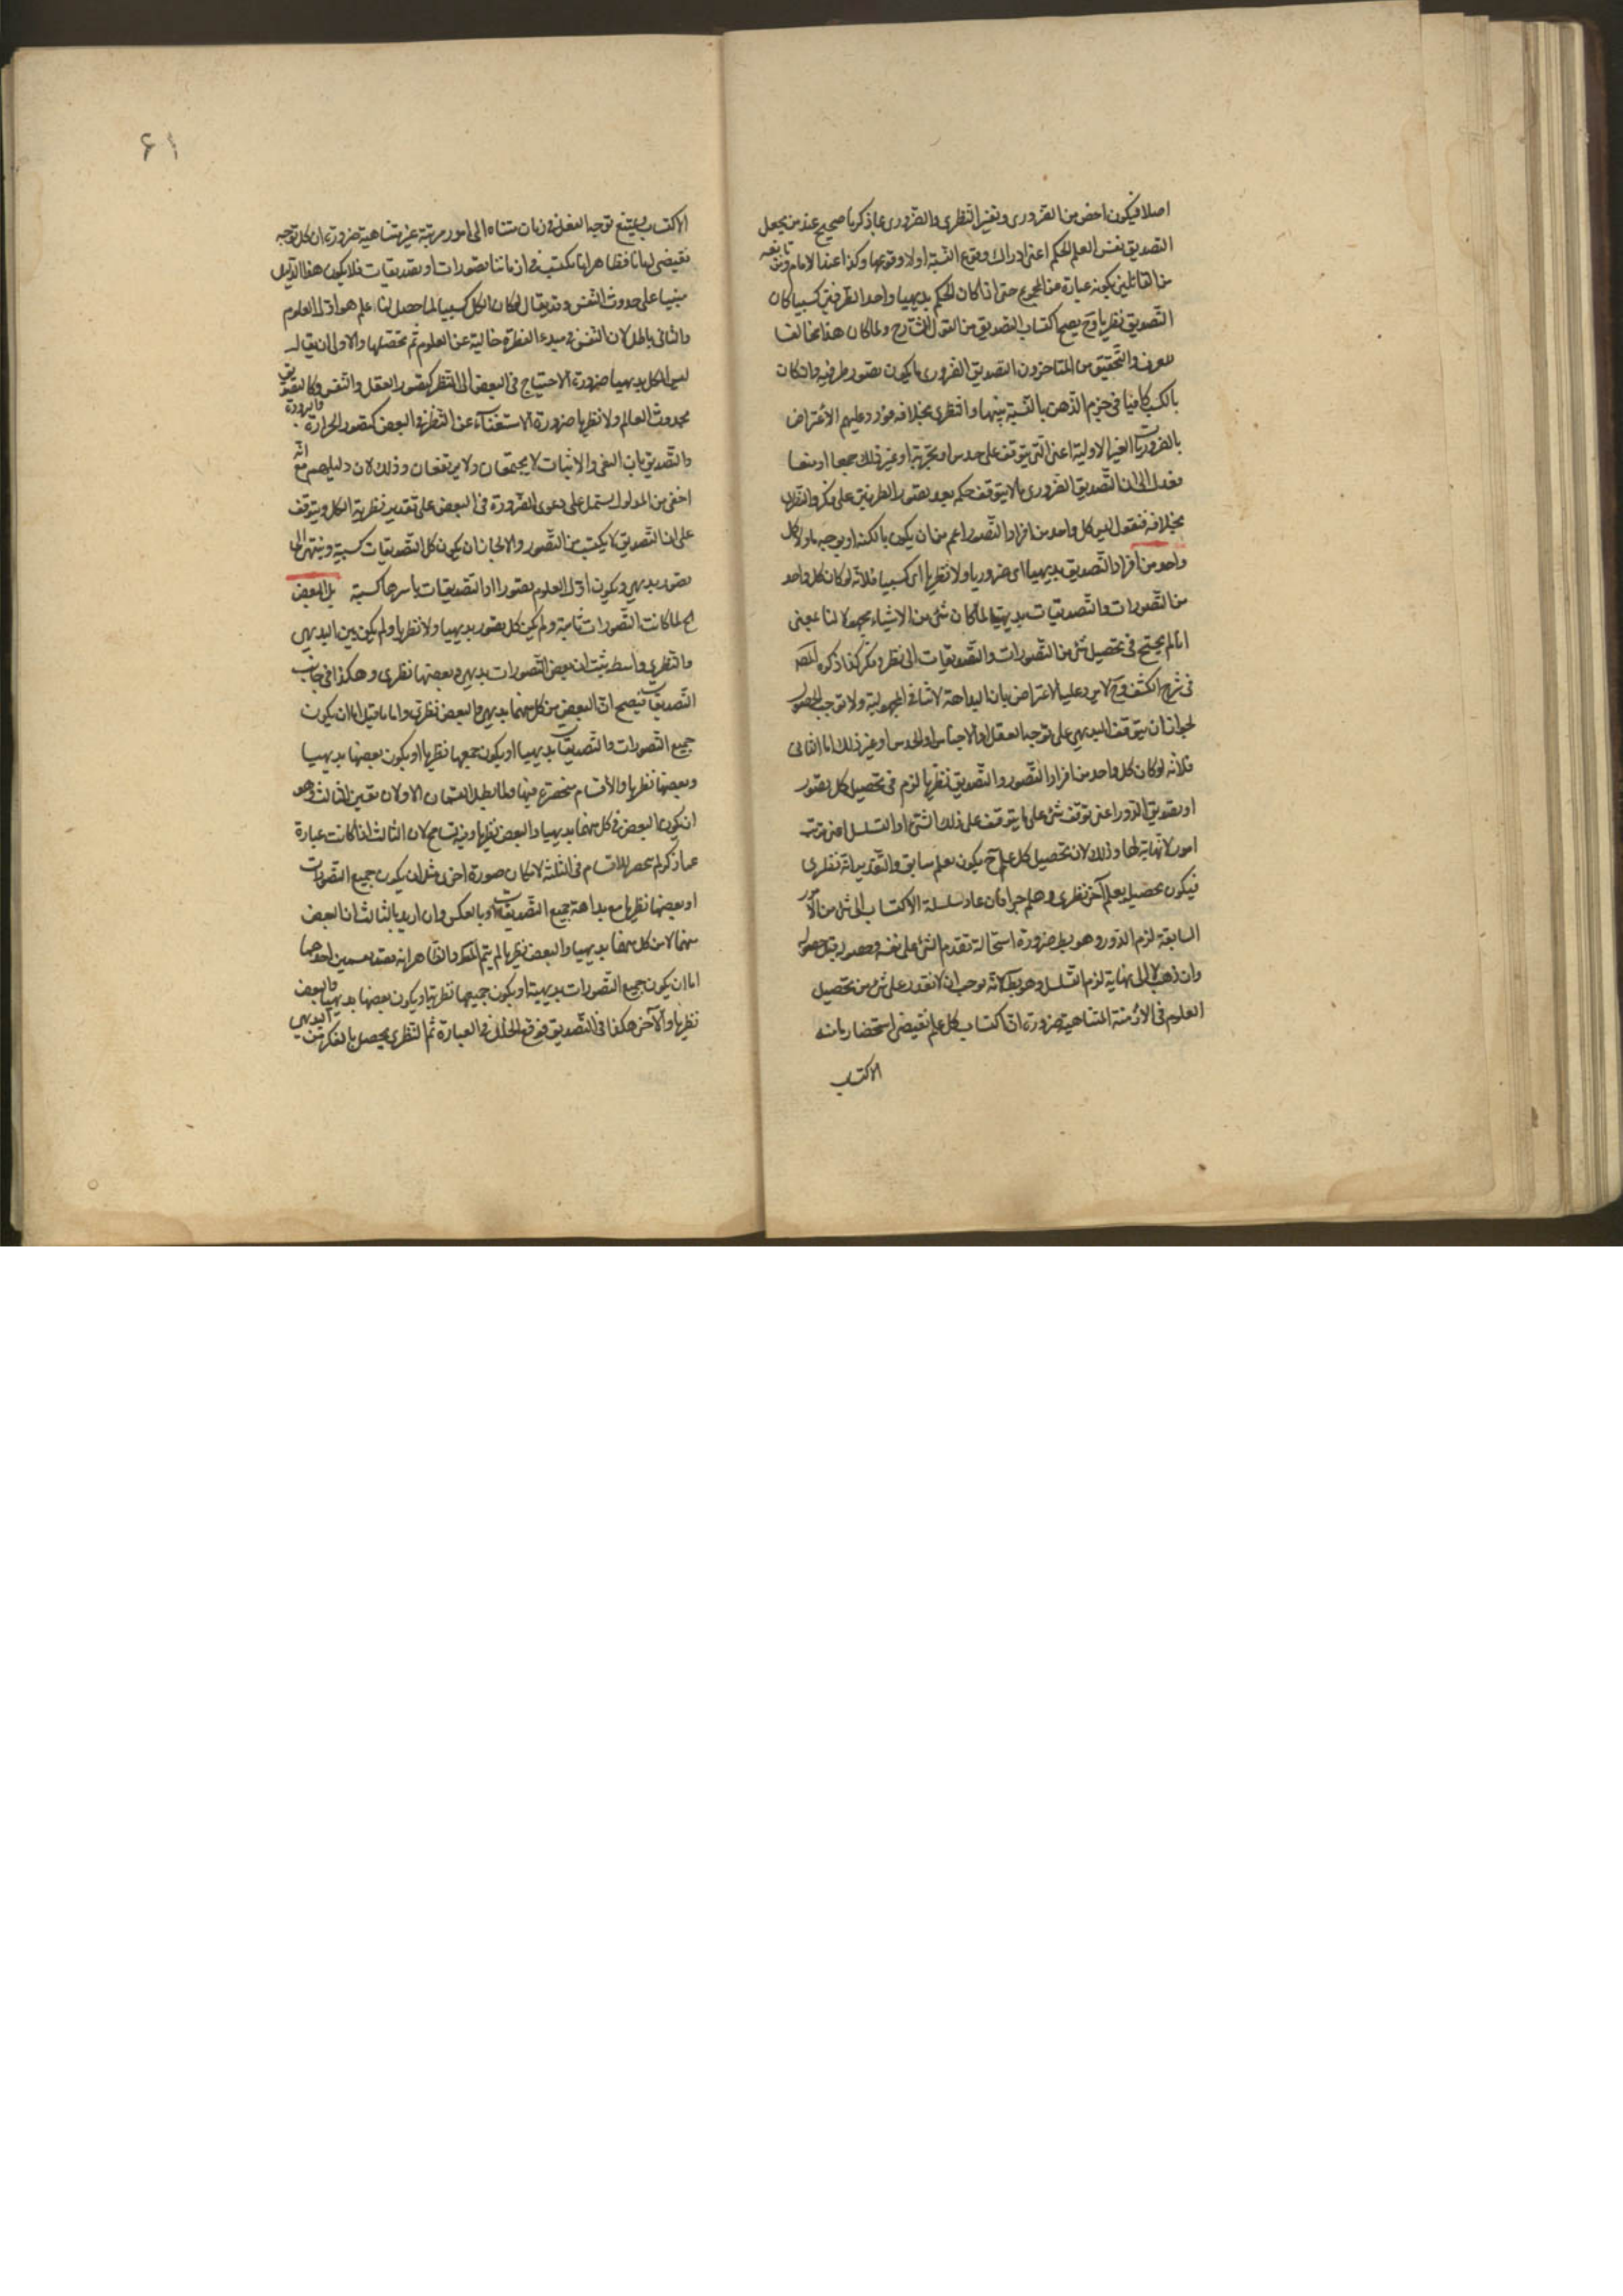 اصلا فيكون اخص من الضرورى وتفسير النظرى والضرورى بما ذكرنا صحيح عند من يجعل
التصديق نفس العلم الحكم اعنى ادراك وقوع النسبة اولا وقوعها وكذا عند الامام ومن تابعه
من القائلين بكونه عبارة عن المجموع حتى اذا كان الحكم بديهيا واحد الطرفين كسبيا كان
التصديق نظريا وح يصح اكتساب التصديق من القول الشارح ولما كان هذا مخالفا
للعرف والتحقيق من المتاخرون التصديق الضرورى ما يكون تصور طرفيه وان كان
بالكسب كافيا فى جزم الذهن بالنسبة بينهما والنظرى بخلافه فورد عليهم الاعتراض
بالضروريات الغير الاولية اعنى التى يتوقف على حدس او تجربة او غير ذلك جمعا او منعا
فعدل الى ان التصديق الضرورى ما لا يتوقف حكمه بعد تصور الطرفين على فكر والنظرى
بخلافه فنقول ليس كل واحد من افراد التصور اعم من ان يكون بالكنه او بوجه ما ولا كل
واحد من افراد التصديق بديهيا اى ضروريا ولا نظريا اى كسبيا فلانه لو كان كل واحد
من التصورات والتصديقات بديهيا لما كان شئ من الاشياء مجهولا لنا بمعنى
انا لم يحتج فى تحصيل شئ من التصورات والتصديقات الى نظر وفكر كذا ذكره المصـ
فى شرح الكشف وح لا يرد عليه الاعتراض بان البداهة لا تنافى المجهولية ولا توجب الحصول
لجواز ان يتوقف البديهى على توجه العقل او الاحساس او الحدس او غير ذلك اما الثانى
فلانه لو كان كل واحد من افراد التصور والتصديق نظريا لزم فى تحصيل كل تصور
او تصديق الدور اعنى توقف شئ على ما يتوقف على ذلك الشئ او التسلسل اعنى ترتب
امور لا نهاية لها وذلك لان تحصيل كل علم ح يكون بعلم سابق والتقدير انه نظرى
فيكون تحصيله بعلم آخر نظرى وهلم جرا فان عاد سلسلة الاكتساب الى شئ من الامور
السابقة لزم الدور وهو بط ضرورة استحالة تقدم الشئ على نفسه وحصوله قبل حصوله
وان ذهب لا الى نهاية لزم التسلسل وهو بط لانه يوجب ان لا نقدر على شئ من تحصيل
العلوم فى الازمنة المتناهية ضرورة ان اكتساب كل علم يقتضى استحضار مانه
الاكتساب
الاكتساب ويمتنع توجه العقل فى زمان متناه الى امور مرتبة غير متناهية ضرورة ان كل توجه
يقتضى زمانا فظاهر انا نكتسب فى ازماننا تصورات او تصديقات فلا يكون هذا الدليل
مبنيا على حدوث النفس وقد يقال لو كان الكل كسبيا لما حصل لنا علم هو اول العلوم
والثانى باطل لان النفس فى مبدء الفطرة خالية عن العلوم ثم تحصلها والاولى ان يقال
ليس الكل بديهيا ضرورة الاحتياج فى البعض الى النظر كتصور العقل والنفس وكالتصديق
بحدوث العالم ولا نظريا ضرورة الاستغناء عن النظر فى البعض كتصور الحرارة والبرودة
والتصديق بان النفى والاثبات لا يجتمعان ولا يرتفعان وذلك لان دليلهم مع انه
اخفى من المدلول يشتمل على دعوى الضرورة فى البعض على تقدير نظرية الكل ويتوقف
على ان التصديق لا يكتسب من التصور والا لجاز ان يكون كل التصديقات كسبية وينتهى الى
تصور بديهى ويكون اول العلوم تصورا او التصديقات باسرها كسبية بل البعض
الخ لما كانت التصورات ثابتة ولم يكن كل تصور بديهيا ولا نظريا ولم يكن بين البديهى
والنظرى واسطة ثبت ان بعض التصورات بديهى وبعضها نظرى وهكذا فى جانب
التصديقات فيصح ان البعض من كل منهما بديهى والبعض نظرى واما ما قيل اما ان يكون
جميع التصورات والتصديقات بديهيا او يكون جميعها نظريا او يكون بعضها بديهيا
وبعضها نظريا والاقسام منحصرة فيها ولما بطل القسمان الاولان تعين الثالث وهو
ان يكون البعض فى كل منهما بديهيا والبعض نظريا وفيه تسامح لان الثالث اذا كانت عبارة
عما ذكر لم ينحصر الاقسام فى الثلثة لامكان صورة اخرى مثل ان يكون جميع التصورات
او بعضها نظريا مع بداهة جميع التصديقات او بالعكس وان اريد بالثالث ان البعض
منهما لا من كل منهما بديهيا والبعض نظريا لم يتم المط والظاهر انه احدهما
اما ان يكون جميع التصورات بديهية او يكون جميعها نظريا او يكون بعضها بديهيا والبعض
نظريا والآخر هكذا فى التصديق فوقع الخلل فى العبارة ثم النظرى يحصل بالفكر من البديهى